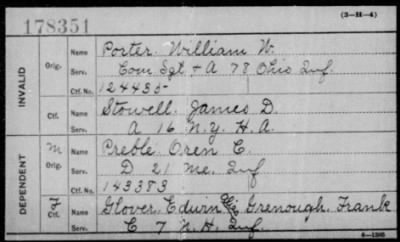 (3-H-4)
178351
INVALID
Orig.
Name Porter William W.
Serv. Com Sgt + A 78 Ohio Inf.
Ctf. No. 124435
Ctf.
Name Stowell. James D.
Serv. A 16 N.Y. H.A.
DEPENDENT
M Orig.
Name Preble Oren C.
Serv. D 21 Me. Inf
Ctf. No. 143383
Ctf.
Name Glover, Edwin alias Grenough, Frank
Serv. C 7 N.H. Inf.